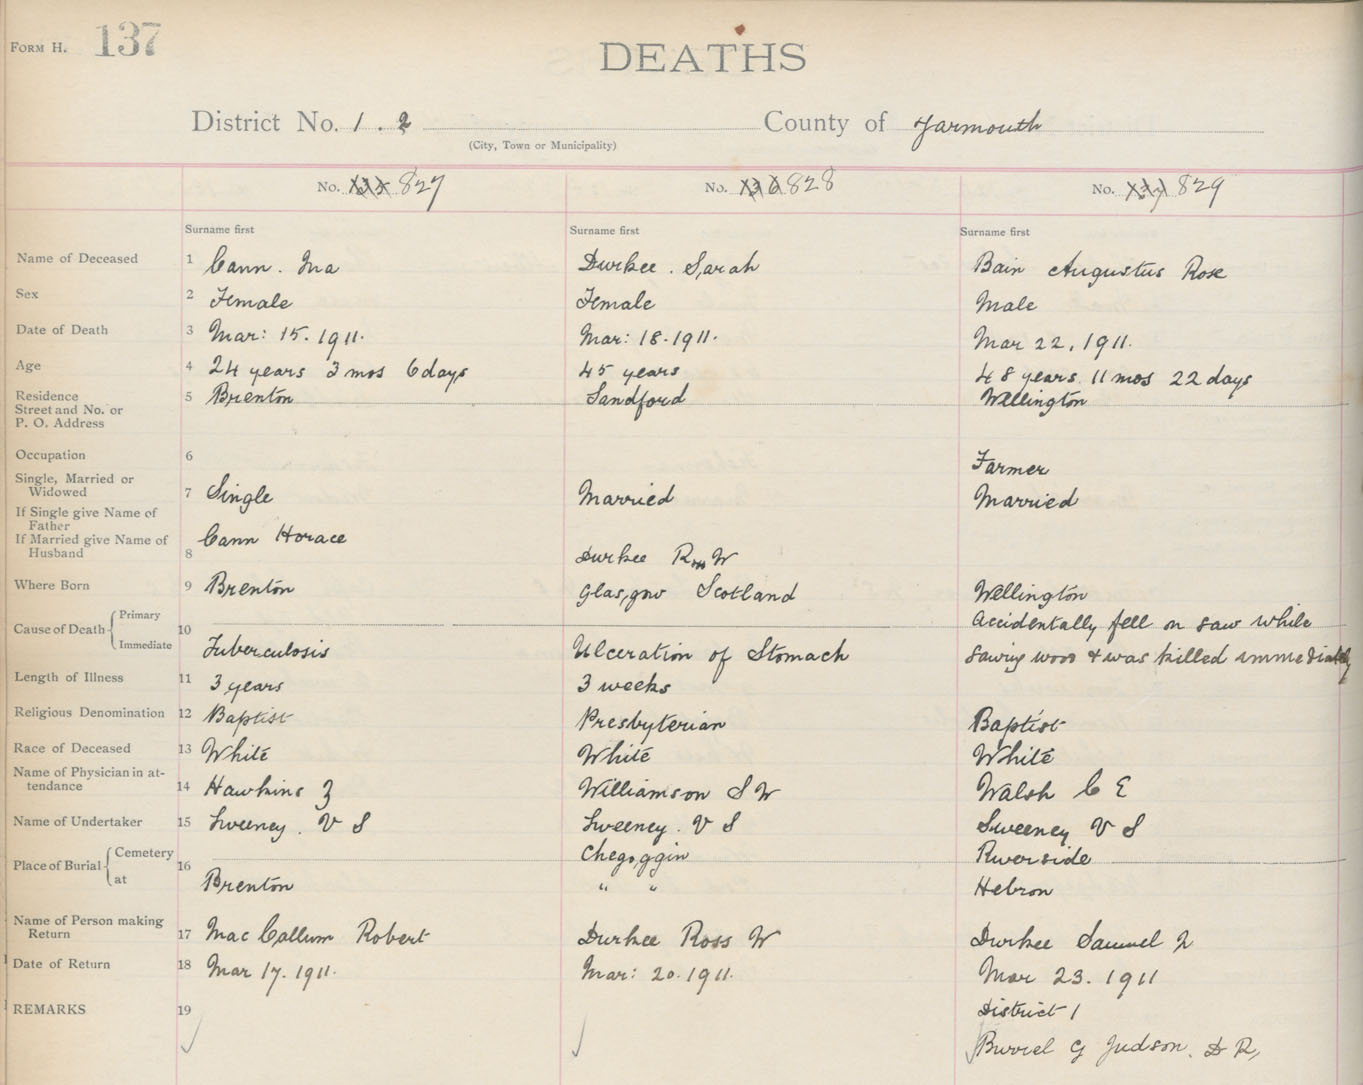 FORM H. 137
DEATHS
District No. 1 . 2 County of Yarmouth
(City, Town or Municipality)
No. 135 827 No. 136 828 No. 137 829
Surname first Surname first Surname first
Name of Deceased 1 Cann . Ina Durkee . Sarah Bain Augustus Rose
Sex 2 Female Female Male
Date of Death 3 Mar: 15. 1911. Mar: 18. 1911. Mar 22, 1911.
Age 4 24 years 3 mos 6 days 45 years 48 years 11 mos 22 days
Residence
Street and No. or 5 Brenton Sandford Wellington
P. O. Address
Occupation 6 Farmer
Single, Married or
Widowed 7 Single Married Married
If Single give Name of
Father
Cann Horace
If Married give Name of
Husband 8 Durkee Ross W
Where Born 9 Brenton Glasgow Scotland Wellington
Cause of Death Primary 10 Accidentally fell on saw while
Immediate Tuberculosis Ulceration of Stomach sawing wood & was killed immediately
Length of Illness 11 3 years 3 weeks
Religious Denomination 12 Baptist Presbyterian Baptist
Race of Deceased 13 White White White
Name of Physician in at-
tendance 14 Hawkins Z Williamson S W Walsh C E
Name of Undertaker 15 Sweeney . V S Sweeney . V S Sweeney V S
Place of Burial Cemetery 16 Chegoggin Riverside
at Brenton " " Hebron
Name of Person making
Return 17 Mac Callum Robert Durkee Ross W Durkee Samuel
Date of Return 18 Mar 17. 1911. Mar: 20. 1911. Mar 23. 1911
REMARKS 19 District 1
Burrel G Judson. D R,